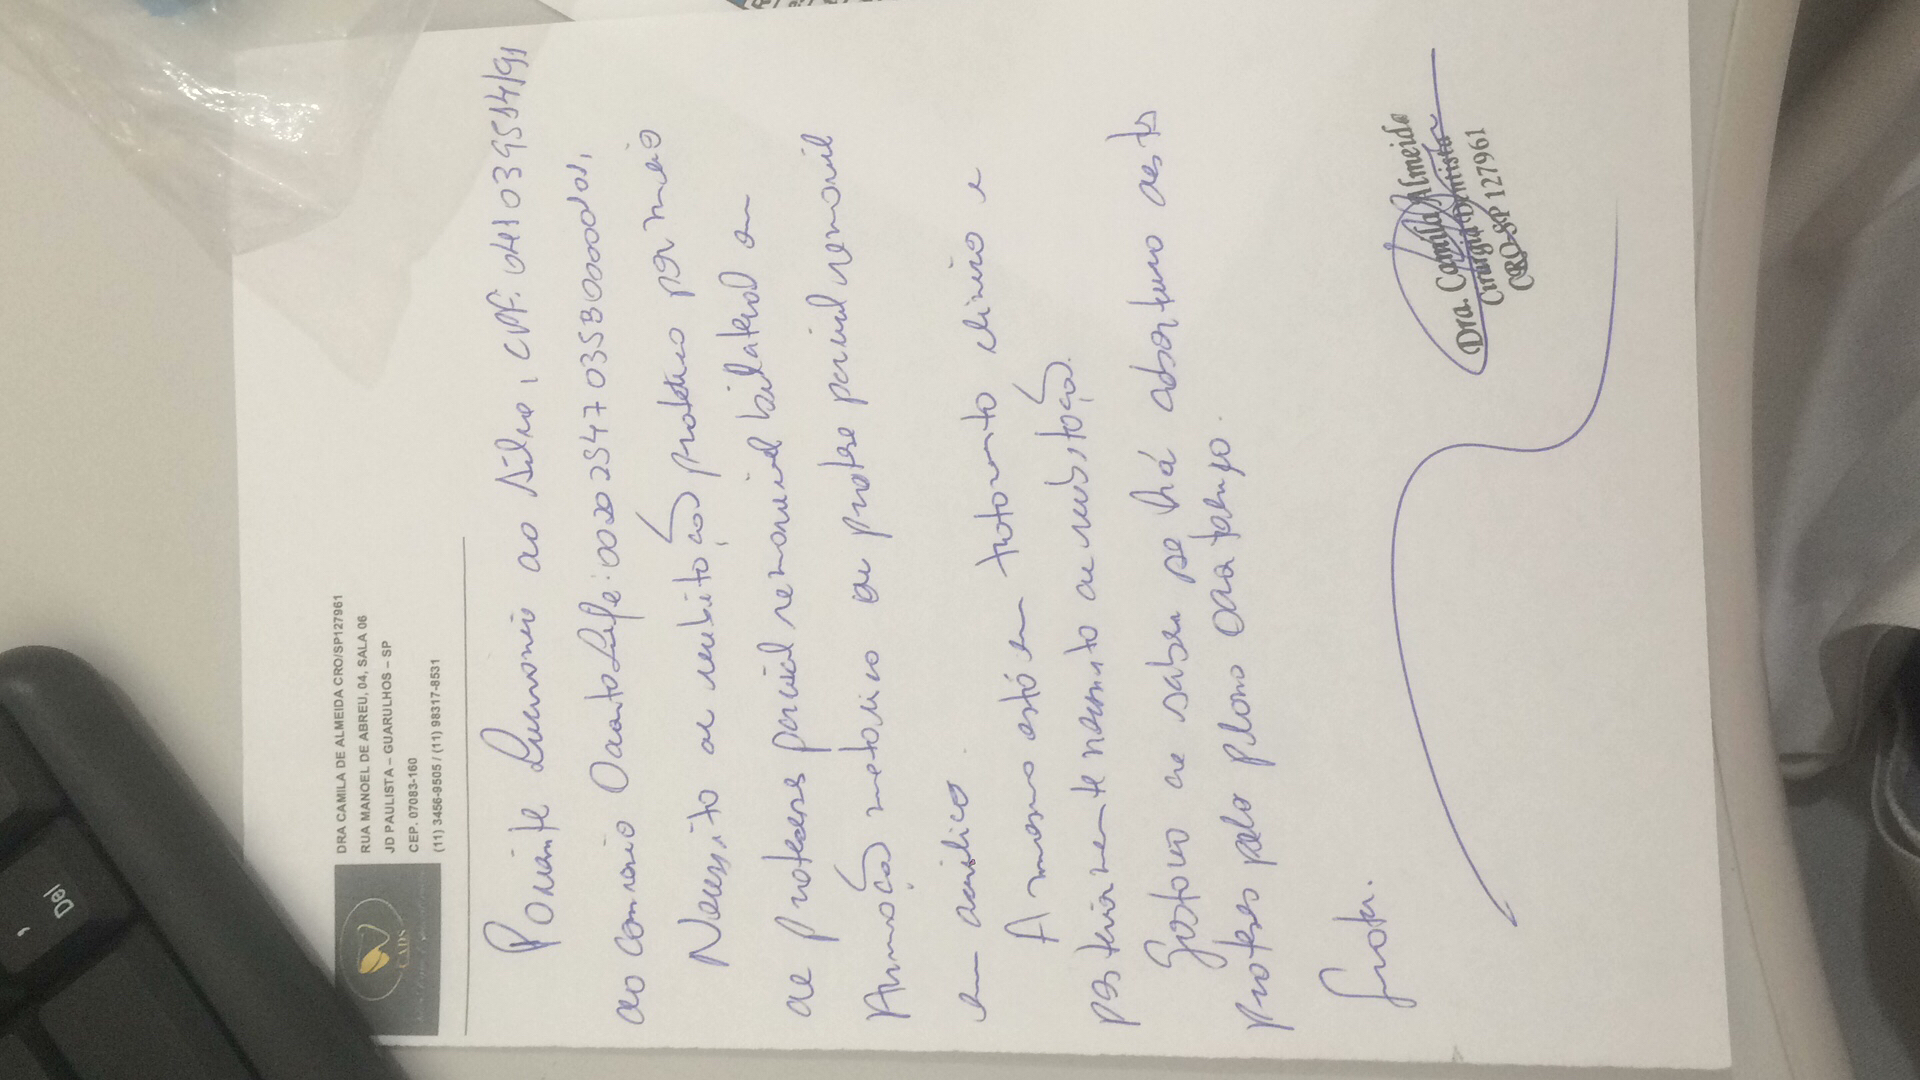 DRA CAMILA DE ALMEIDA CRO/SP127961
RUA MANOEL DE ABREU, 04, SALA 06
JD PAULISTA – GUARULHOS – SP
CEP. 07083-160
(11) 3456-9505 / (11) 98317-8531
CADS
Paciente da Silva, CPF:
do convênio OdontoLife:
Necessita de reabilitação protética por meio
de próteses parcial removível bilateral em
Armação metálica e prótese parcial removível
em acrílico.
A mesma está em tratamento clínico e
posteriormente necessita de reabilitação.
Gostaria de saber se há cobertura desta
próteses pelo plano
Grata.
Dra. Camila Almeida
Cirurgiã Dentista
CRO-SP 127961
Del